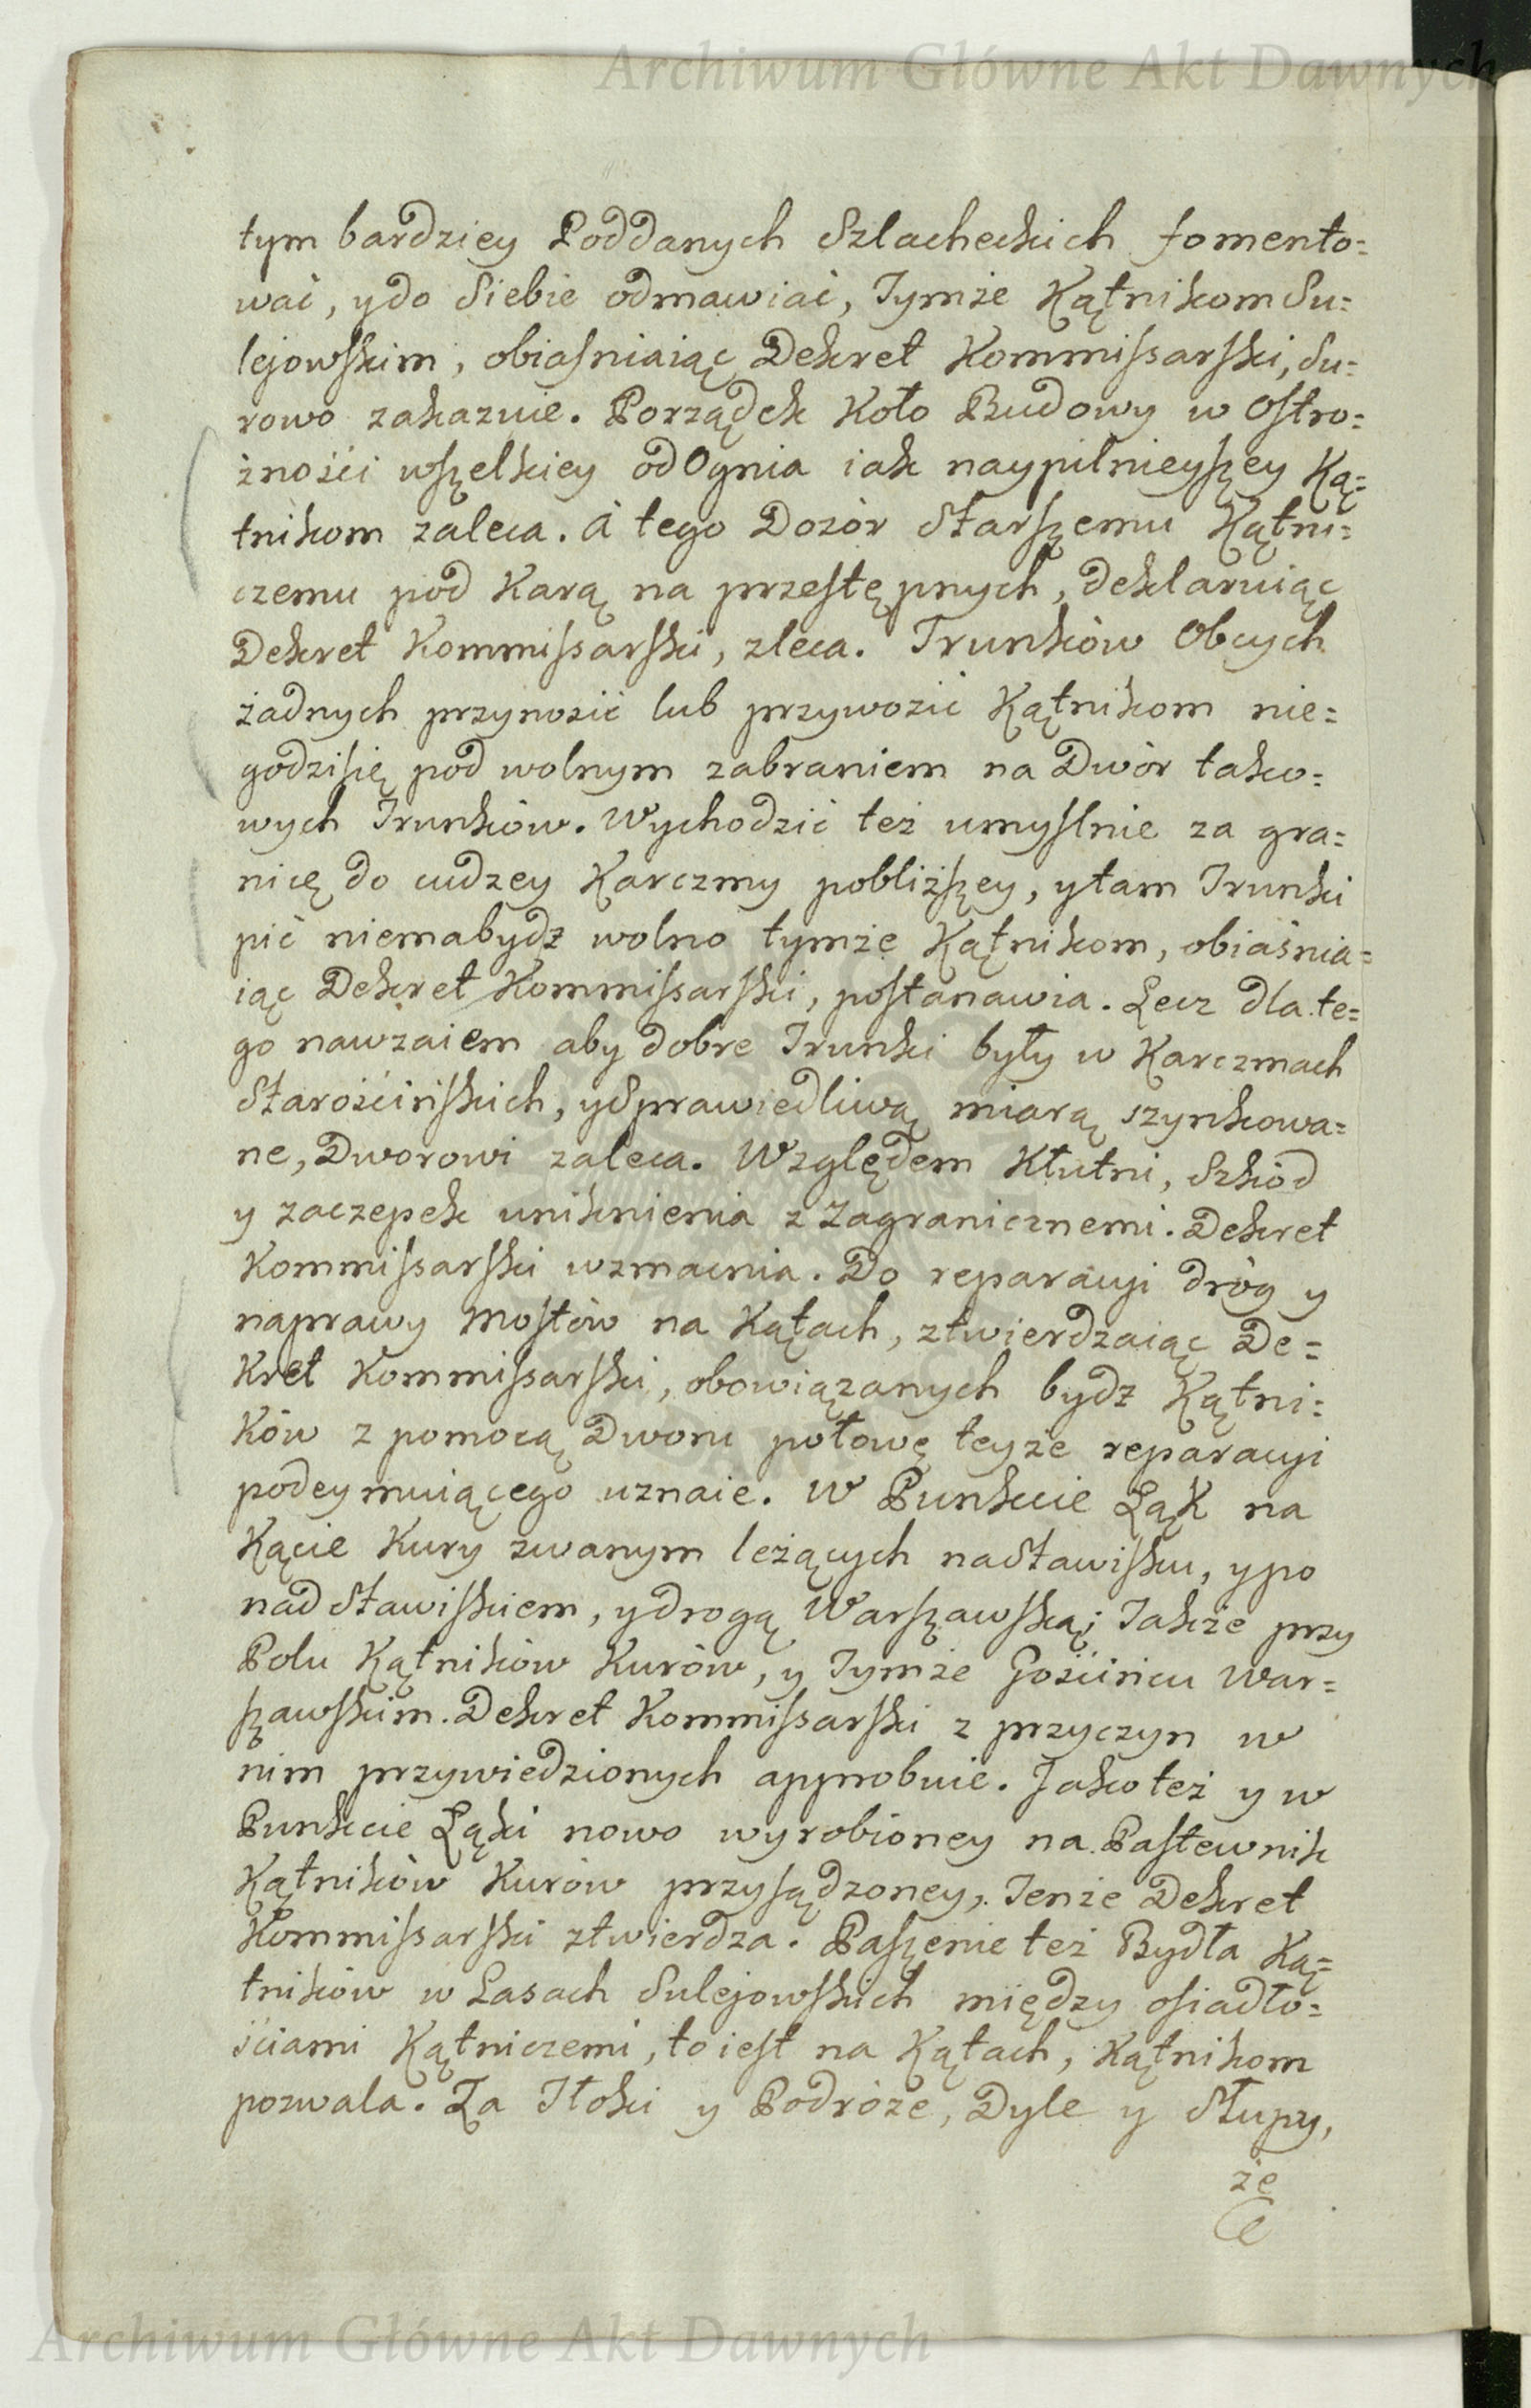 Archiwum Główne Akt Dawnych
tym bardziey Poddanych Szlacheckich fomento=
wać, y do Siebie odmawiać, Tymże Kątnikom Su=
lejowskim, obiasniaiąc Dekret Kommissarski, Su=
rowo zakazuie. Porządek Koło Budowy w Ostro=
żności wszelkiey od Ognia iak naypilnieyszey Ką=
tnikom zaleca. A tego Dozór Starszemu Kątni=
czemu pod Karą na przestępnych, deklaruiąc
Dekret Kommissarski, zleca. Trunków Obcych
żadnych przynosić lub przywozić Kątnikom nie=
godzisię pod wolnym zabraniem na Dwór tako=
wych Trunków. Wychodzić też umyslnie za gra=
nicę do cudzey Karczmy pobliższey, y tam Trunki
pić niemabydz wolno tymże Kątnikom, obiaśnia=
iąc Dekret Kommissarski, postanawia. Lecz dla te=
go nawzaiem aby dobre Trunki były w Karczmach
Starościńskich, y Sprawiedliwą miarą szynkowa=
ne, Dworowi zaleca. Względem Kłutni, Szkód
y zaczepek uniknienia z Zagranicznemi. Dekret
Kommissarski wzmacnia. Do reparacyi dróg y
naprawy Mostów na Kątach, ztwierdzaiąc De=
kret Kommissarski, obowiązanych bydz Kątni=
ków z pomocą Dworu połowę teyże reparacyi
podeymuiącego uznaie. W Punkcie Łąk na
Kącie Kury zwanym leżących na Stawisku, y po
nad Stawiskiem, y drogą Warszawską; Takze przy
Polu Kątników Kurów, y Tymże Gościńcu War=
szawskim. Dekret Kommissarski z przyczyn w
nim przywiedzionych approbuie. Jako też y w
Punkcie Łąki nowo wyrobioney na Pastewnik
Kątników Kurów przysądzoney, Tenże Dekret
Kommissarski ztwierdza. Paszenie też Bydła Ką=
tników w Lasach Sulejowskich między osiadło=
ściami Kątniczemi, to iest na Kątach, Kątnikom
pozwala. Za Tłoki y Podróże, Dyle y Słupy,
że
Archiwum Główne Akt Dawnych